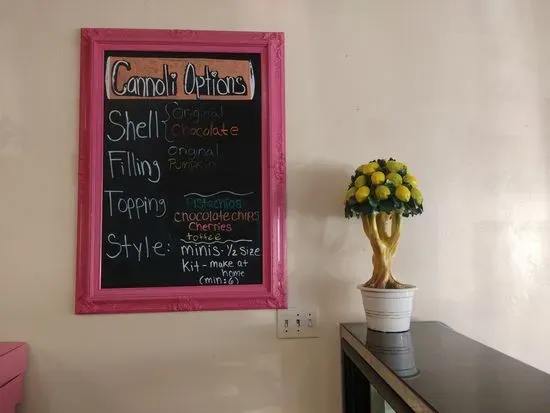 Cannoli Options
Shell { Original
Chocolate
Filling Original
Pumpkin
Topping Pistachios
chocolate chips
Cherries
toffee
Style: minis - 1/2 size
Kit - make at
home
(min: 6)